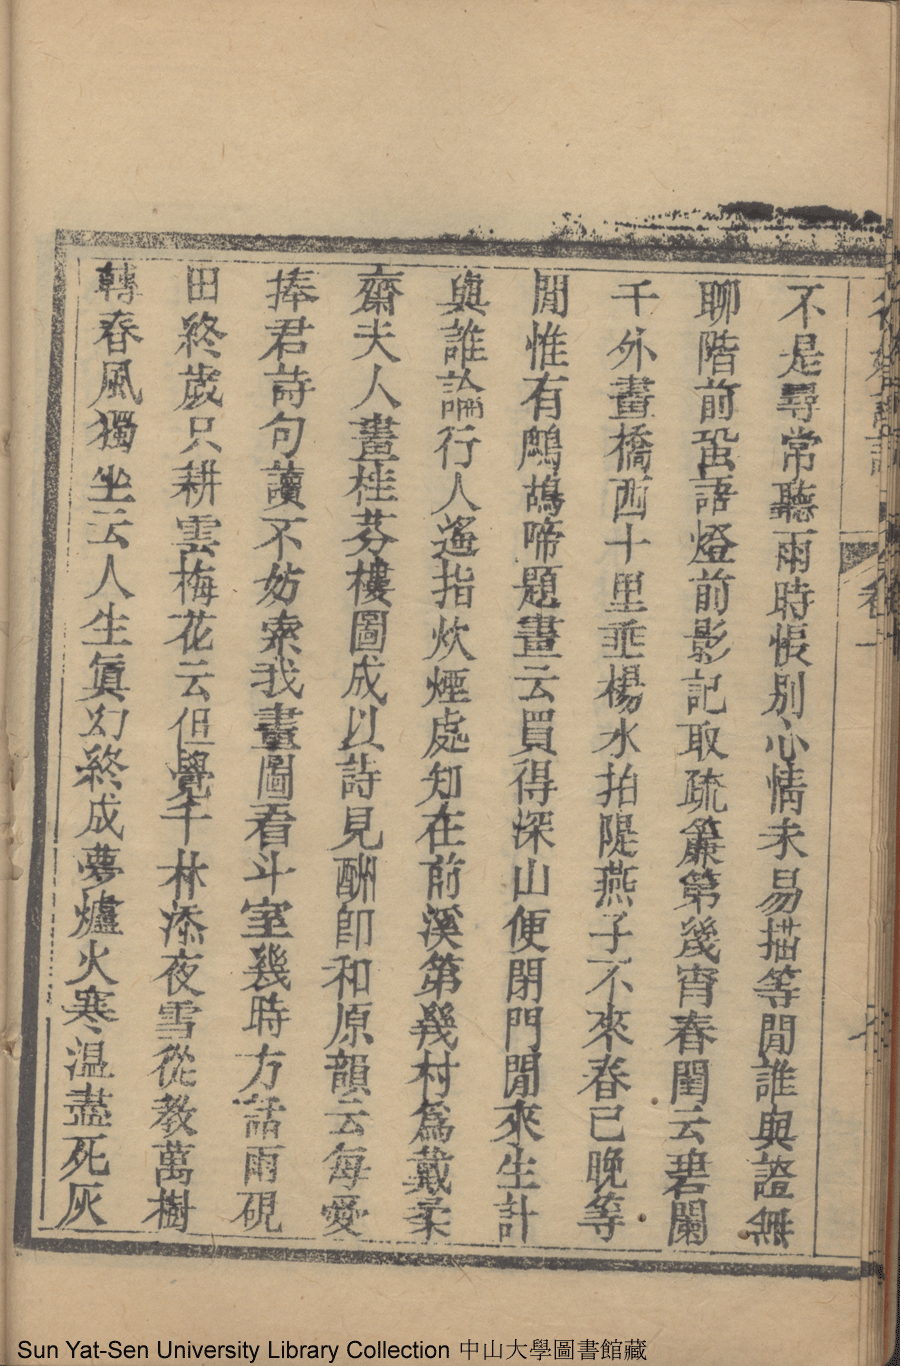 不是尋常聽雨時悵別心情未易描等閒誰與證無
聊階前蛩語燈前影記取疏簾第幾宵春閨云碧闌
千外畫橋西十里垂楊水拍隄燕子不來春已晚等
閒惟有鷓鴣啼題畫云買得深山便閉門閒來生計
與誰論行人遙指炊煙處知在前溪第幾村爲戴柔
齋夫人畫桂芬樓圖成以詩見酬卽和原韻云每愛
捧君詩句讀不妨索我畫圖看斗室幾時方話雨硯
田終歲只耕雲梅花云但覺千林添夜雪從教萬樹
轉春風獨坐云人生眞幻終成夢爐火寒温盡死灰
卷一
Sun Yat-Sen University Library Collection 中山大學圖書館藏